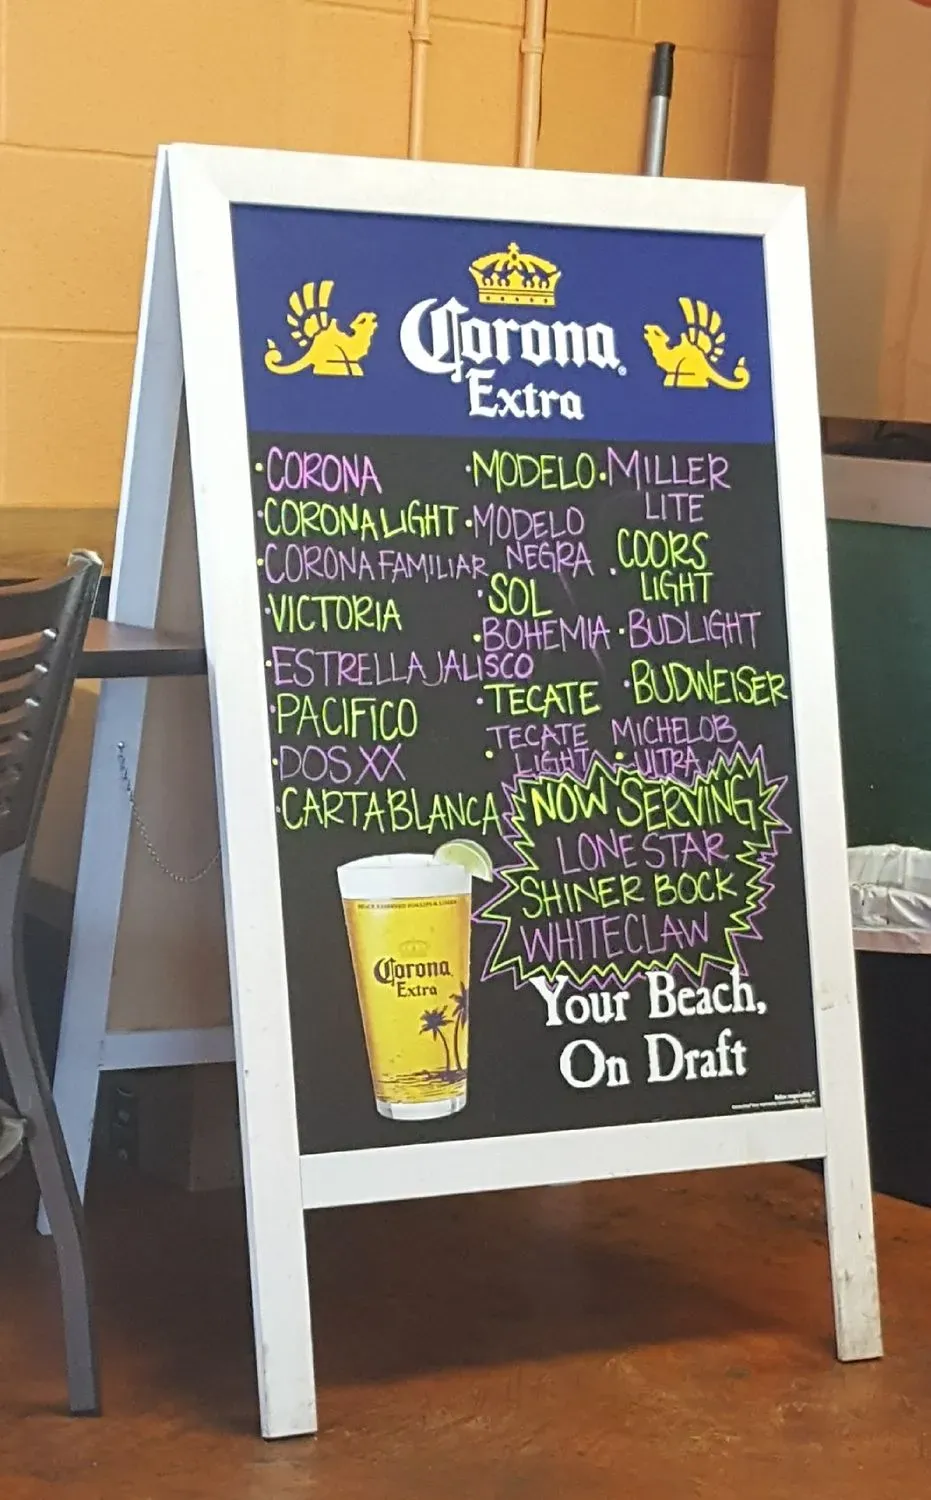 Corona
Extra
·CORONA
·CORONA LIGHT
·CORONA FAMILIAR
·VICTORIA
·ESTRELLA JALISCO
·PACIFICO
·DOS XX
·CARTA BLANCA
·MODELO
·MODELO
NEGRA
·SOL
·BOHEMIA
·TECATE
·TECATE
LIGHT
·MILLER
LITE
·COORS
LIGHT
·BUDLIGHT
·BUDWEISER
·MICHELOB
ULTRA
NOW SERVING
LONE STAR
SHINER BOCK
WHITECLAW
Corona
Extra
Your Beach,
On Draft